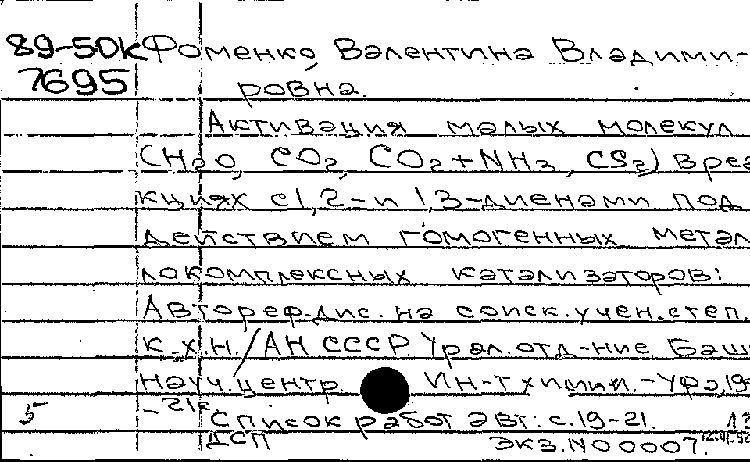 89-50к Фоменко, Валентина Владими-
7695 ровна.
Активация малых молекул
(CH2O, CO2, CO2+NH3, CS2) в реа
кциях с 1,2- и 1,3-диенами под
действием гомогенных метал
локомплексных катализаторов:
Автореф. дис. на соиск. учен. степ.
к.х.н. / АН СССР Урал. отд-ние Баш
науч. центр. Ин-т химии. - Уфа, 19
5 - 21с Список работ авт.: с. 19-21.
ДСП Экз. NO 0007.